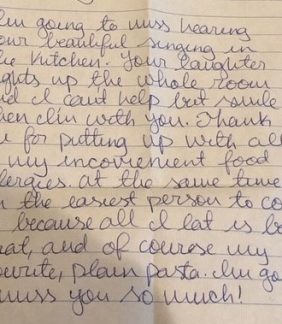 I'm going to miss hearing
our beautiful singing in
he Kutchen. Your laughter
ghts up the whole room
nd I can't help but smile
hen I'm with you. Thank
u for putting up with all
my incovienient food
llergies. at the same time
m the easiest person to co
because all I eat is be
eat, and of course my
vourite, plain pasta. I'm go
miss you so much!